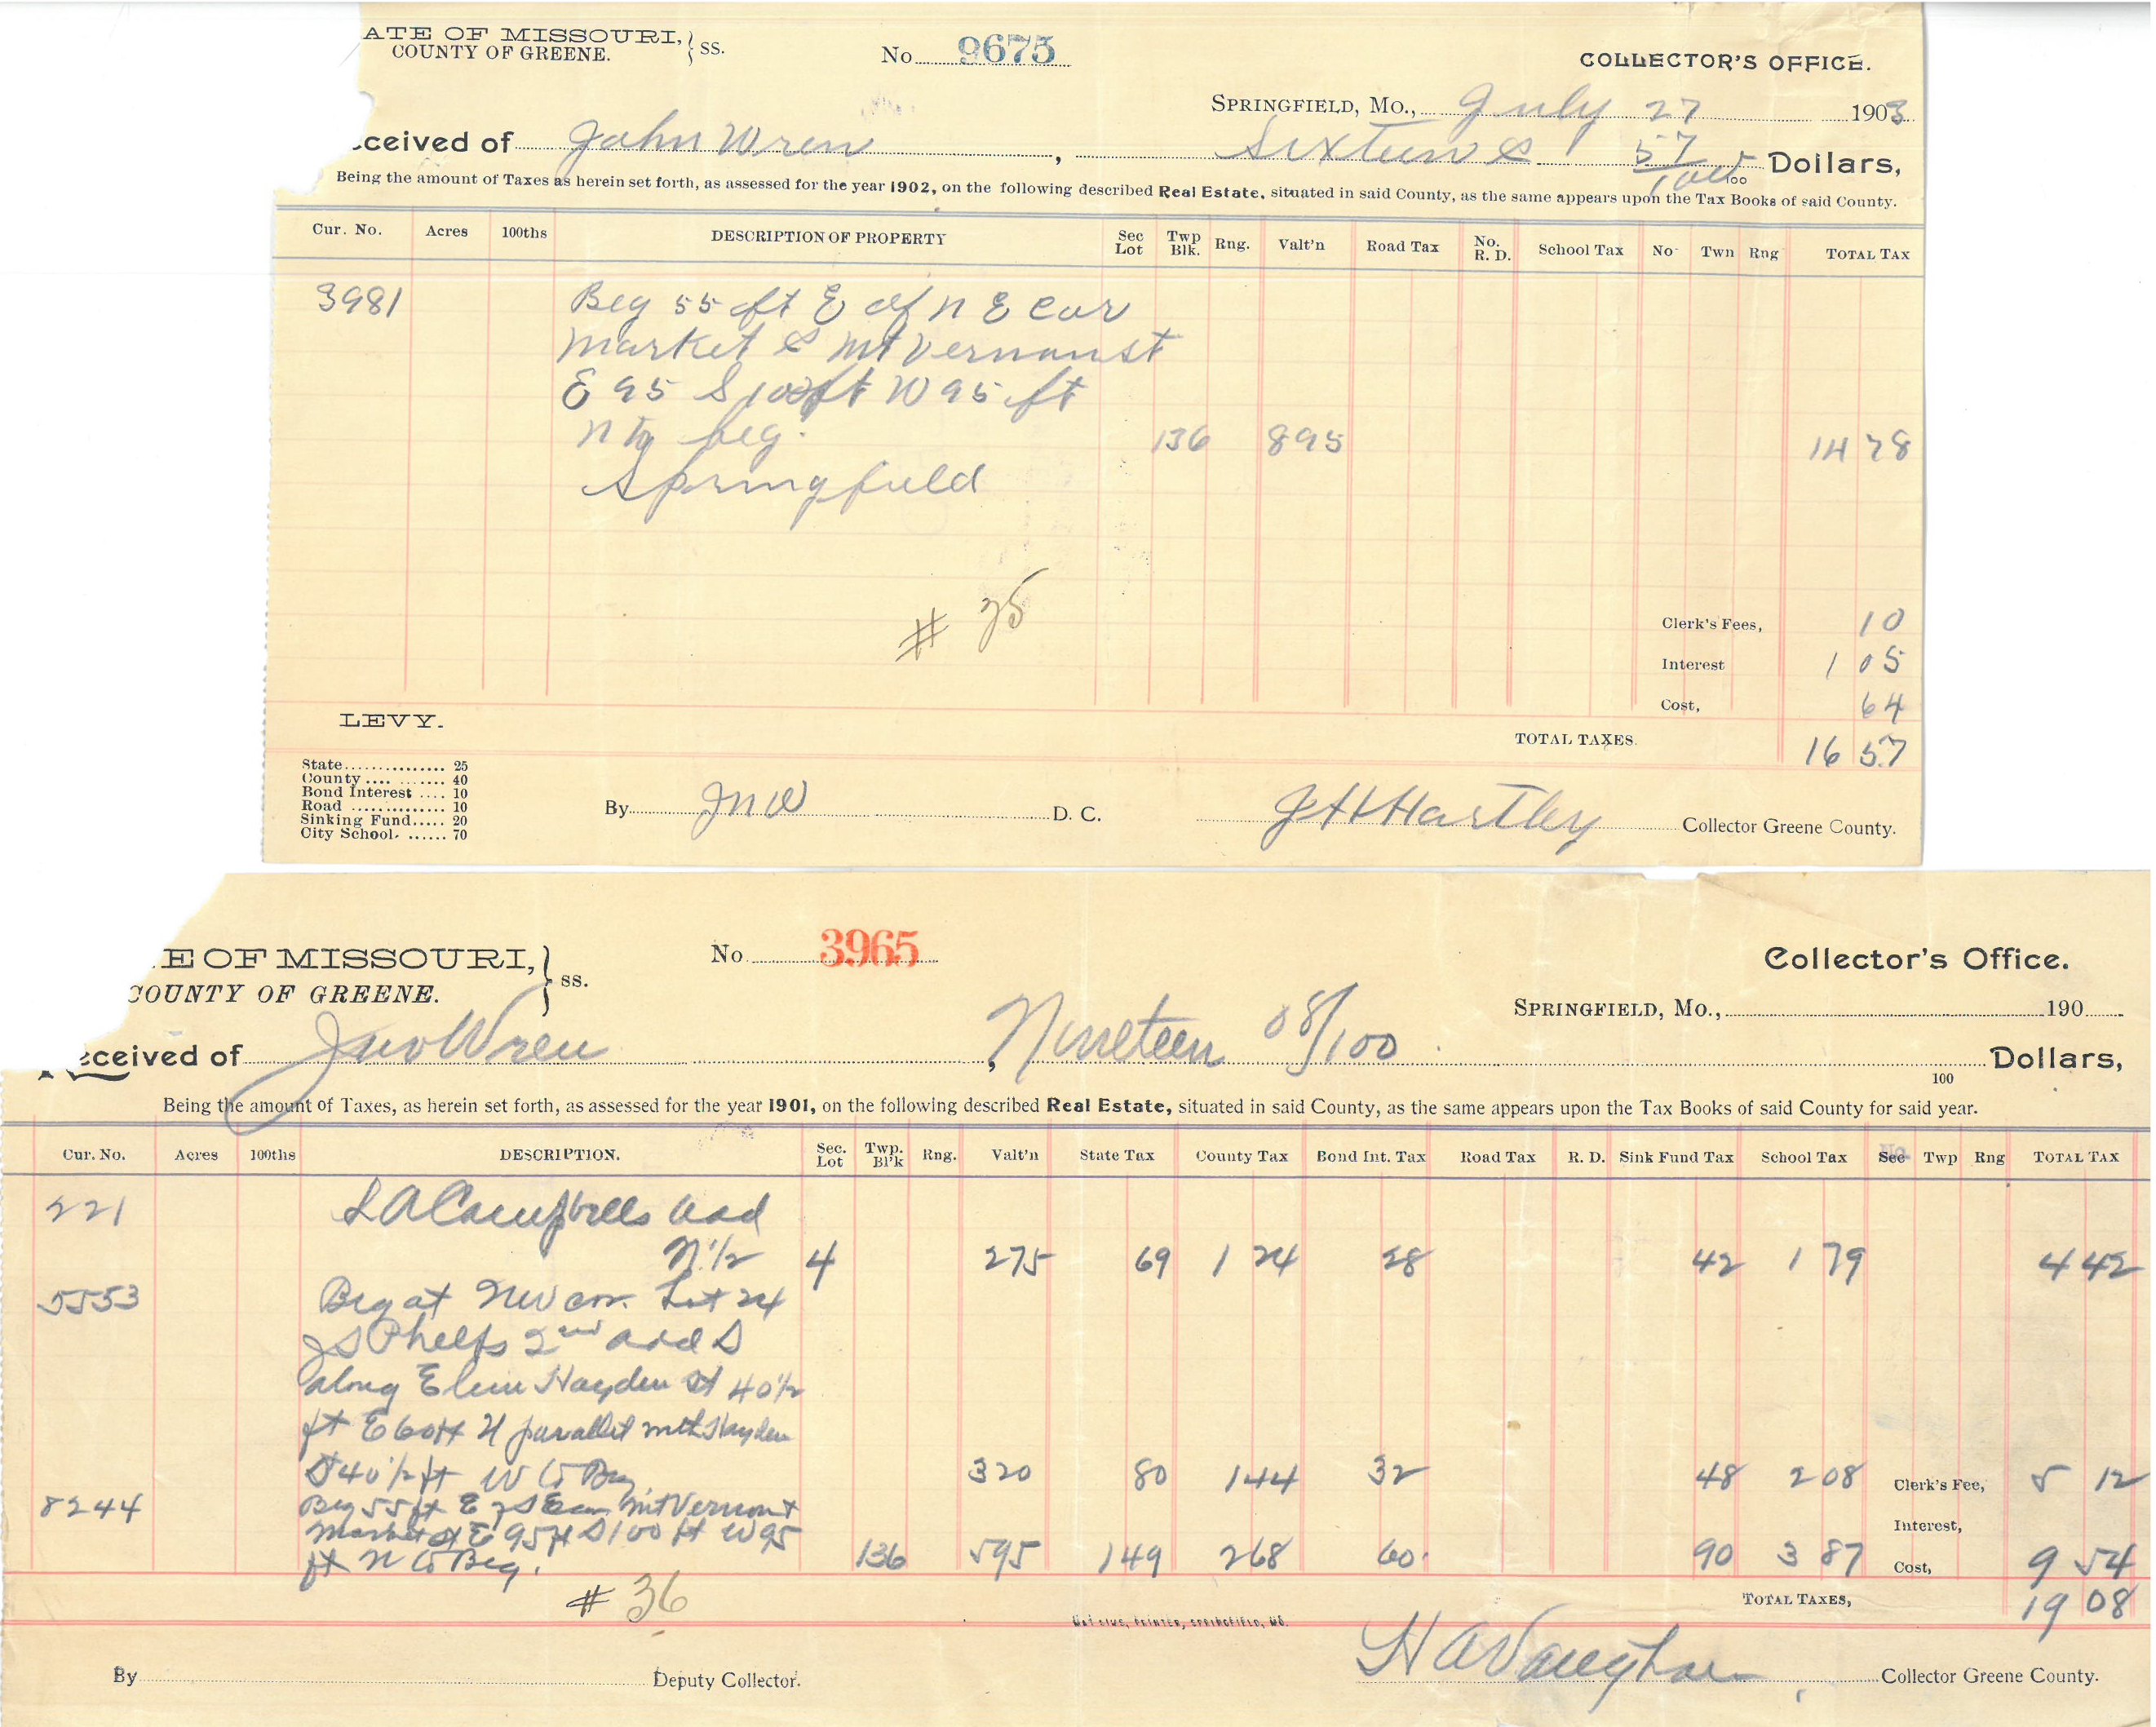 ATE OF MISSOURI, } SS.
COUNTY OF GREENE.
No 9675
COLLECTOR'S OFFICE.
SPRINGFIELD, MO., July 27 1903
ceived of John Wren, Sixteen & 57/100 Dollars,
100
Being the amount of Taxes as herein set forth, as assessed for the year 1902, on the following described Real Estate, situated in said County, as the same appears upon the Tax Books of said County.
Cur. No. Acres 100ths DESCRIPTION OF PROPERTY Sec Lot Twp Blk. Rng. Valt'n Road Tax No. R. D. School Tax No Twn Rng TOTAL TAX
3981 Beg 55 ft E of N E Cor
Market & Mt Vernon St
E 95 S 100 ft W 95 ft
N to beg. 136 895 14 78
Springfield
# 35
Clerk's Fees, 10
Interest 1 05
Cost, 64
LEVY.
TOTAL TAXES. 16 57
State 25
County 40
Bond Interest 10
Road 10
Sinking Fund 20
City School 70
By JNW D. C. J H Hartley Collector Greene County.
E OF MISSOURI, } SS.
COUNTY OF GREENE.
No 3965
Collector's Office.
SPRINGFIELD, MO., 190
eceived of Jno Wren, Nineteen 08/100 Dollars,
100
Being the amount of Taxes, as herein set forth, as assessed for the year 1901, on the following described Real Estate, situated in said County, as the same appears upon the Tax Books of said County for said year.
Cur. No. Acres 100ths DESCRIPTION. Sec. Lot Twp. Bl'k Rng. Valt'n State Tax County Tax Bond Int. Tax Road Tax R. D. Sink Fund Tax School Tax Sec Twp Rng TOTAL TAX
221 L A Campbells add
N 1/2 4 275 69 1 24 28 42 1 79 4 42
5553 Beg at NW cor. Lot 24
J S Phelps 2nd add S
along E line Hayden St 40 1/2
ft E 60 ft N parallel with Hayden
St 40 1/2 ft W to Beg. 320 80 144 32 48 2 08 Clerk's Fee, 5 12
8244 Beg 55 ft E of S E cor Mt Vernon &
Market St E 95 ft S 100 ft W 95 Interest,
ft N to Beg. 136 595 149 268 60 90 3 87 Cost, 9 54
# 36
TOTAL TAXES, 19 08
PRINTER, SPRINGFIELD, MO.
By Deputy Collector. H A Vaughan Collector Greene County.